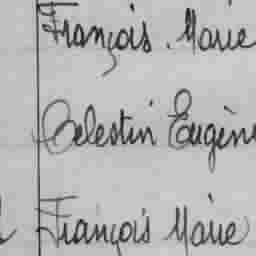 François. Marie
Celestin Eugène
François Marie